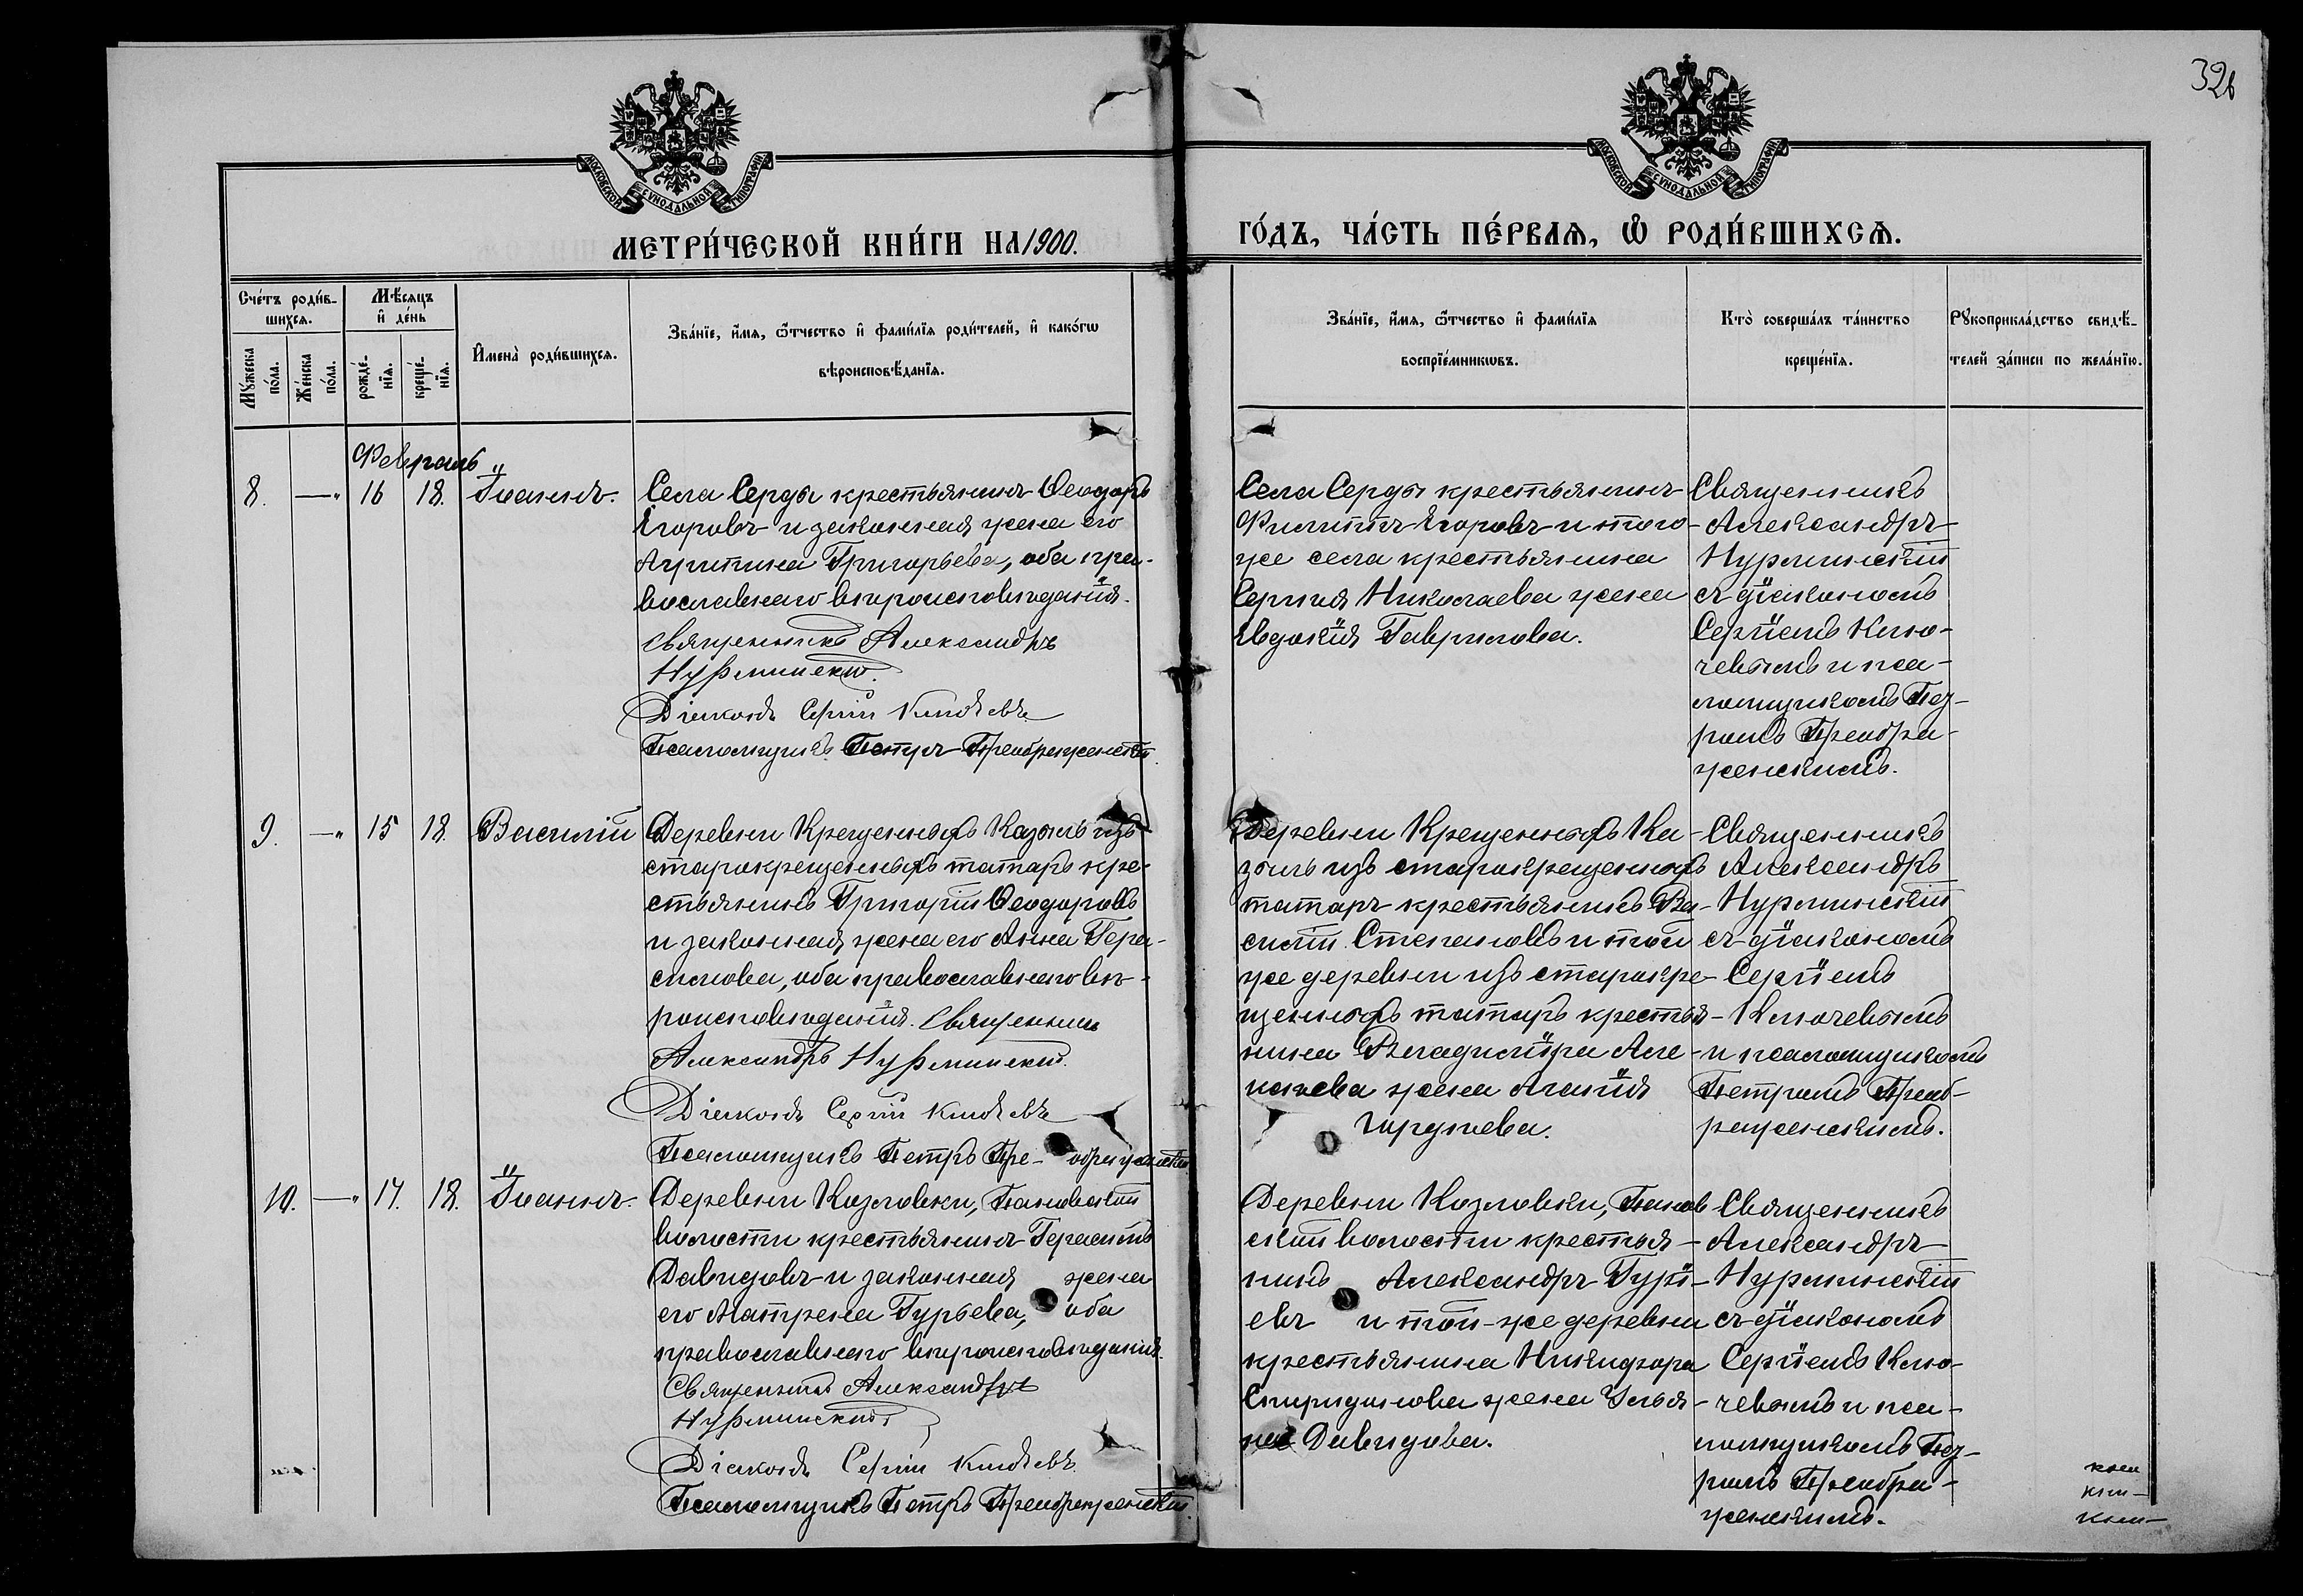 326
МОСКОВСКОЙ СѴНОДАЛЬНОЙ ТИПОГРАФІИ
МОСКОВСКОЙ СѴНОДАЛЬНОЙ ТИПОГРАФІИ
МЕТРИ́ЧЕСКОЙ КНИ́ГИ НА 1900.
ГО́ДЪ, ЧА́СТЬ ПЕ́РВАѦ, Ѽ РОДИ́ВШИХСѦ.
Сче́тъ роди́в-
шихсѧ.
Мꙋ́жеска
по́ла.
Же́нска
по́ла.
Мѣ́сѧцъ
и҆ де́нь
рожде́-
нїѧ.
креще́-
нїѧ.
И҆мена̀ роди́вшихсѧ.
Зва́нїе, и҆́мѧ, ѻ҆́тчество и҆ фами́лїѧ роди́телей, и҆ како́гѡ
вѣроисповѣ́данїѧ.
Зва́нїе, и҆́мѧ, ѻ҆́тчество и҆ фами́лїѧ
воспрїе́мникѡвъ.
Кто̀ соверша́лъ та́инство
креще́нїѧ.
Рꙋкоприкла́дство свидѣ́-
телей за́писи по жела́нїю.
Февраль
8. —„ 16 18. Іоаннъ.
Села Серды крестьянинъ Ѳеодоръ
Егоровъ и законная жена его
Агрипина Григорьева, оба пра-
вославнаго вѣроисповѣданія.
Священникъ Александръ
Нурминскій.
Діаконъ Сергій Ключевъ
Псаломщикъ Петръ Преображенскій.
Села Серды крестьянинъ
Филиппъ Егоровъ и того-
же села крестьянина
Сергія Николаева жена
Евдокія Гаврилова.
Священникъ
Александръ
Нурминскій
съ діакономъ
Сергіемъ Клю-
чевымъ и пса-
ломщикомъ Пет-
ромъ Преобра-
женскимъ.
9. —„ 15 18. Василій
Деревни Крещенныхъ Казыль изъ
старокрещенныхъ татаръ кре-
стьянинъ Григорій Ѳеодоровъ
и законная жена его Анна Гера-
симова, оба православнаго вѣ-
роисповѣданія. Священникъ
Александръ Нурминскій.
Діаконъ Сергій Ключевъ
Псаломщикъ Петръ Пре-ображенскій
Деревни Крещенныхъ Ка-
зыль изъ старокрещенныхъ
татаръ крестьянинъ Ва-
силій Степановъ и той
же деревни изъ старокре-
щенныхъ татаръ крестья-
нина Владиміра Але-
жена
Священникъ
Александръ
Нурминскій
съ діакономъ
Сергіемъ
Ключевымъ
и псаломщикомъ
Петромъ Преоб-
раженскимъ.
10. —„ 17. 18. Іоаннъ.
Деревни Козловки, Пановской
волости крестьянинъ Герасимъ
Давидовъ и законная жена
его Матрена Гурьева, оба
православнаго вѣроисповѣданія.
Священникъ Александръ
Нурминскій
Діаконъ Сергій Ключевъ.
Псаломщикъ Петръ Преображенскій.
Деревни Козловки, Панов
ской волости крестья-
нинъ Александръ Гурі-
евъ и той-же деревни
крестьянина Никифора
Спиридонова жена Улья-
на Давидова.
Священникъ
Александръ
Нурминскій
съ діакономъ
Сергіемъ Клю-
чевымъ и пса-
ломщикомъ Пет-
ромъ Преобра-
женскимъ.